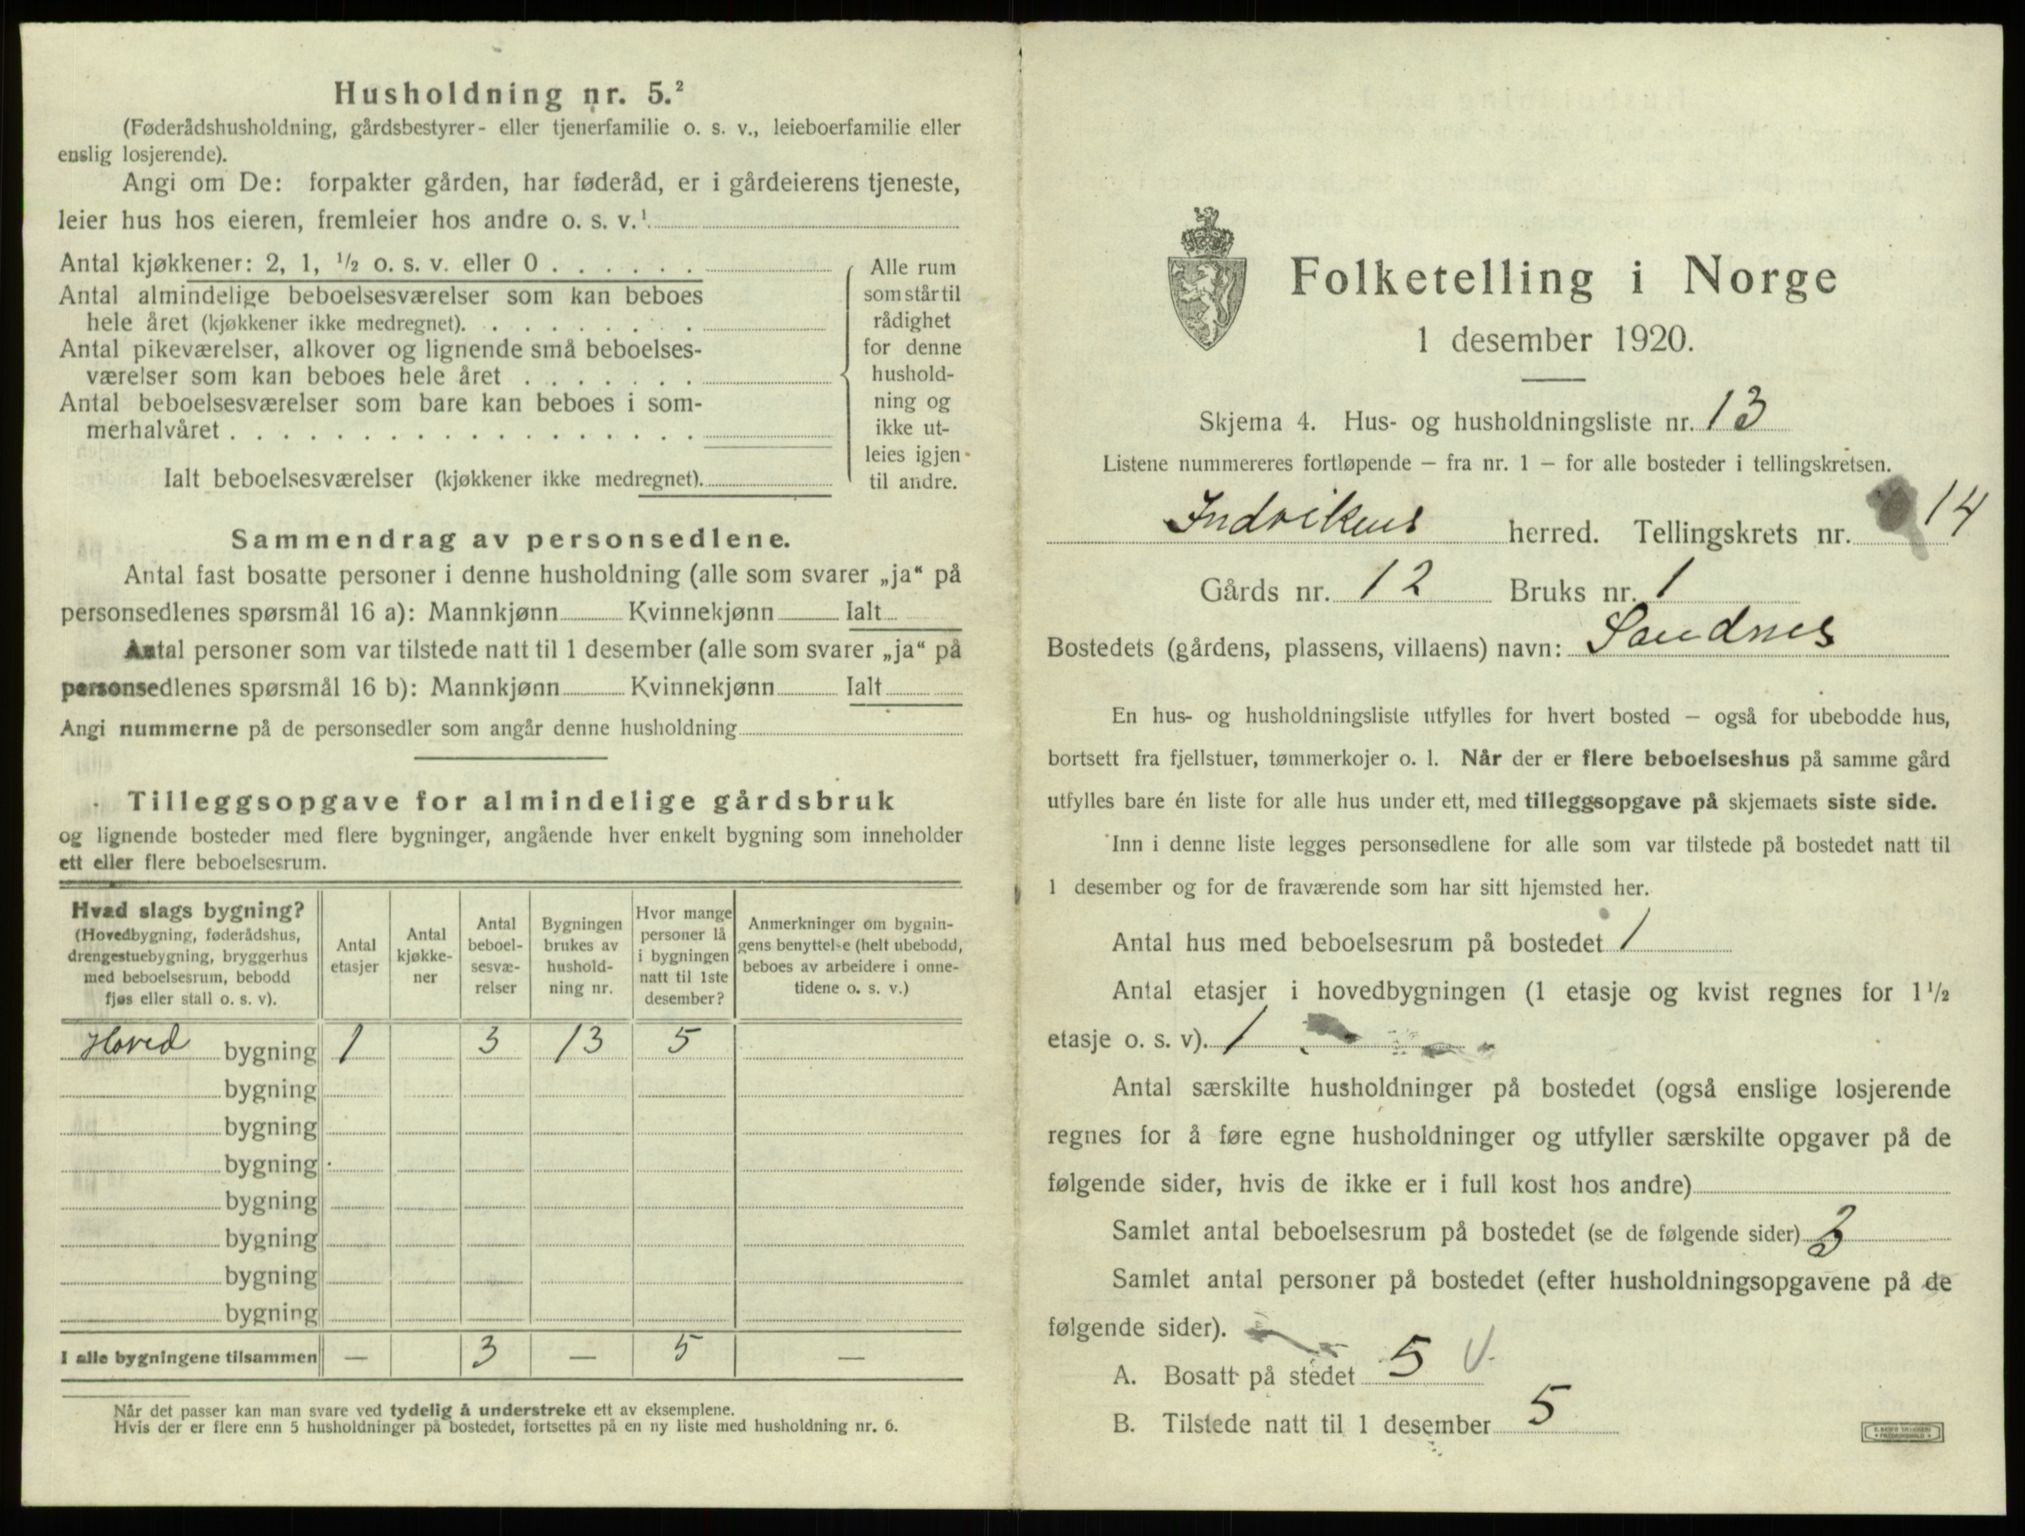 Husholdning nr. 5.²
(Føderådshusholdning, gårdsbestyrer- eller tjenerfamilie o. s. v., leieboerfamilie eller
enslig losjerende).
Angi om De: forpakter gården, har føderåd, er i gårdeierens tjeneste,
leier hus hos eieren, fremleier hos andre o. s. v.¹
Antal kjøkkener: 2, 1, ½ o. s. v. eller 0 . . . . . .
Antal almindelige beboelsesværelser som kan beboes
hele året (kjøkkener ikke medregnet). . . . . . . . .
Antal pikeværelser, alkover og lignende små beboelses-
værelser som kan beboes hele året . . . . . . .
Antal beboelsesværelser som bare kan beboes i som-
merhalvåret . . . . . . . . . . . . . . . . . .
Ialt beboelsesværelser (kjøkkener ikke medregnet).
Alle rum
som står til
rådighet
for denne
hushold-
ning og
ikke ut-
leies igjen
til andre.
Sammendrag av personsedlene.
Antal fast bosatte personer i denne husholdning (alle som svarer „ja“ på
personsedlenes spørsmål 16 a): Mannkjønn Kvinnekjønn Ialt
Antal personer som var tilstede natt til 1 desember (alle som svarer „ja“ på
personsedlenes spørsmål 16 b): Mannkjønn Kvinnekjønn Ialt
Angi nummerne på de personsedler som angår denne husholdning
Tilleggsopgave for almindelige gårdsbruk
og lignende bosteder med flere bygninger, angående hver enkelt bygning som inneholder
ett eller flere beboelsesrum.
Hvad slags bygning?
(Hovedbygning, føderådshus,
drengestuebygning, bryggerhus
med beboelsesrum, bebodd
fjøs eller stall o. s. v).
Antal
etasjer
Antal
kjøkke-
ner
Antal
beboel-
sesvæ-
relser
Bygningen
brukes av
hushold-
ning nr.
Hvor mange
personer lå
i bygningen
natt til 1ste
desember?
Anmerkninger om bygnin-
gens benyttelse (helt ubebodd,
beboes av arbeidere i onne-
tidene o. s. v.)
Hoved bygning 1 3 13 5
bygning
bygning
bygning
bygning
bygning
bygning
bygning
I alle bygningene tilsammen — 3 — 5 —
Når det passer kan man svare ved tydelig å understreke ett av eksemplene.
Hvis der er flere enn 5 husholdninger på bostedet, fortsettes på en ny liste med husholdning nr. 6.
Folketelling i Norge
1 desember 1920.
Skjema 4. Hus- og husholdningsliste nr. 13
Listene nummereres fortløpende – fra nr. 1 – for alle bosteder i tellingskretsen.
Indvikens herred. Tellingskrets nr. 14
Gårds nr. 12 Bruks nr. 1
Bostedets (gårdens, plassens, villaens) navn: Sandnes
En hus- og husholdningsliste utfylles for hvert bosted – også for ubebodde hus,
bortsett fra fjellstuer, tømmerkojer o. l. Når der er flere beboelseshus på samme gård
utfylles bare én liste for alle hus under ett, med tilleggsopgave på skjemaets siste side.
Inn i denne liste legges personsedlene for alle som var tilstede på bostedet natt til
1 desember og for de fraværende som har sitt hjemsted her.
Antal hus med beboelsesrum på bostedet 1
Antal etasjer i hovedbygningen (1 etasje og kvist regnes for 1½
etasje o. s. v). 1
Antal særskilte husholdninger på bostedet (også enslige losjerende
regnes for å føre egne husholdninger og utfyller særskilte opgaver på de
følgende sider, hvis de ikke er i full kost hos andre)
Samlet antal beboelsesrum på bostedet (se de følgende sider) 3
Samlet antal personer på bostedet (efter husholdningsopgavene på de
følgende sider).
A. Bosatt på stedet 5 V.
B. Tilstede natt til 1 desember 5